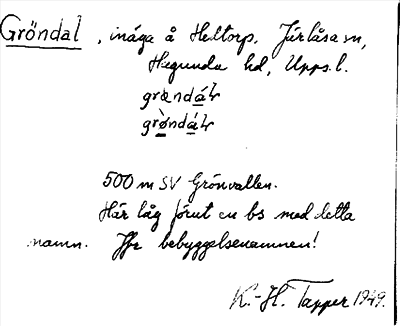 Gröndal, inäga å Heltorp, Järlåsa sn,
Hagunda hd, Upps. l.
grøndáƚ
grø̀ndáƚ
500 m SV Grönvallen.
Här låg förut en bs med detta
namn. Jfr bebyggelsenamnen!
K.-H. Tapper 1949.